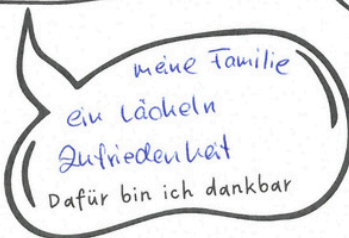 meine Familie
ein Lächeln
Zufriedenheit
Dafür bin ich dankbar